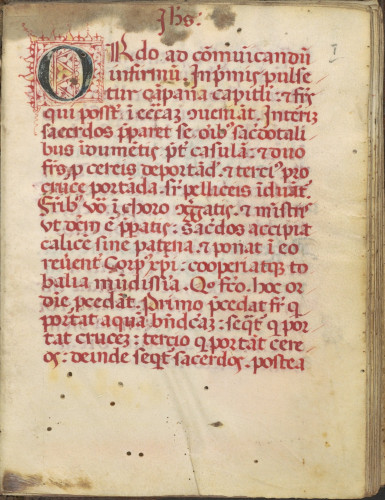 Jhs:
ORdo ad cōmunicandū
infirmū. Inpͥmis pulse
tur cāpana capitli: & frs̄
qui possūt ī eccā ꝯueniāt. Interī
sacerdos ppāret se oībꝰ sacdotali
bus īdumētis pt̄ casulā: & duo
frs̄ p cereis deportād & tercius pro
cruce portāda. sr̄ pelliceis īduāt.
Fribꝰ v̄o ī choro ꝯgͣgatis. &
vt dcm̄ ē ppatis: Sacdos accipiat
calicē sine patena & ponat ī eo
reuēnt Corpꝰ xpi: cooperiatqꝫ to
balia mūdissīa. Quo fco. hoc or
die pcedāt. Primo pcedat fr̄ q
portat aquā bn̄dcāꝫ: seqͭ q por
tat crucem: tertio q portāt cere
os: deinde seqͭ sacerdos. postea